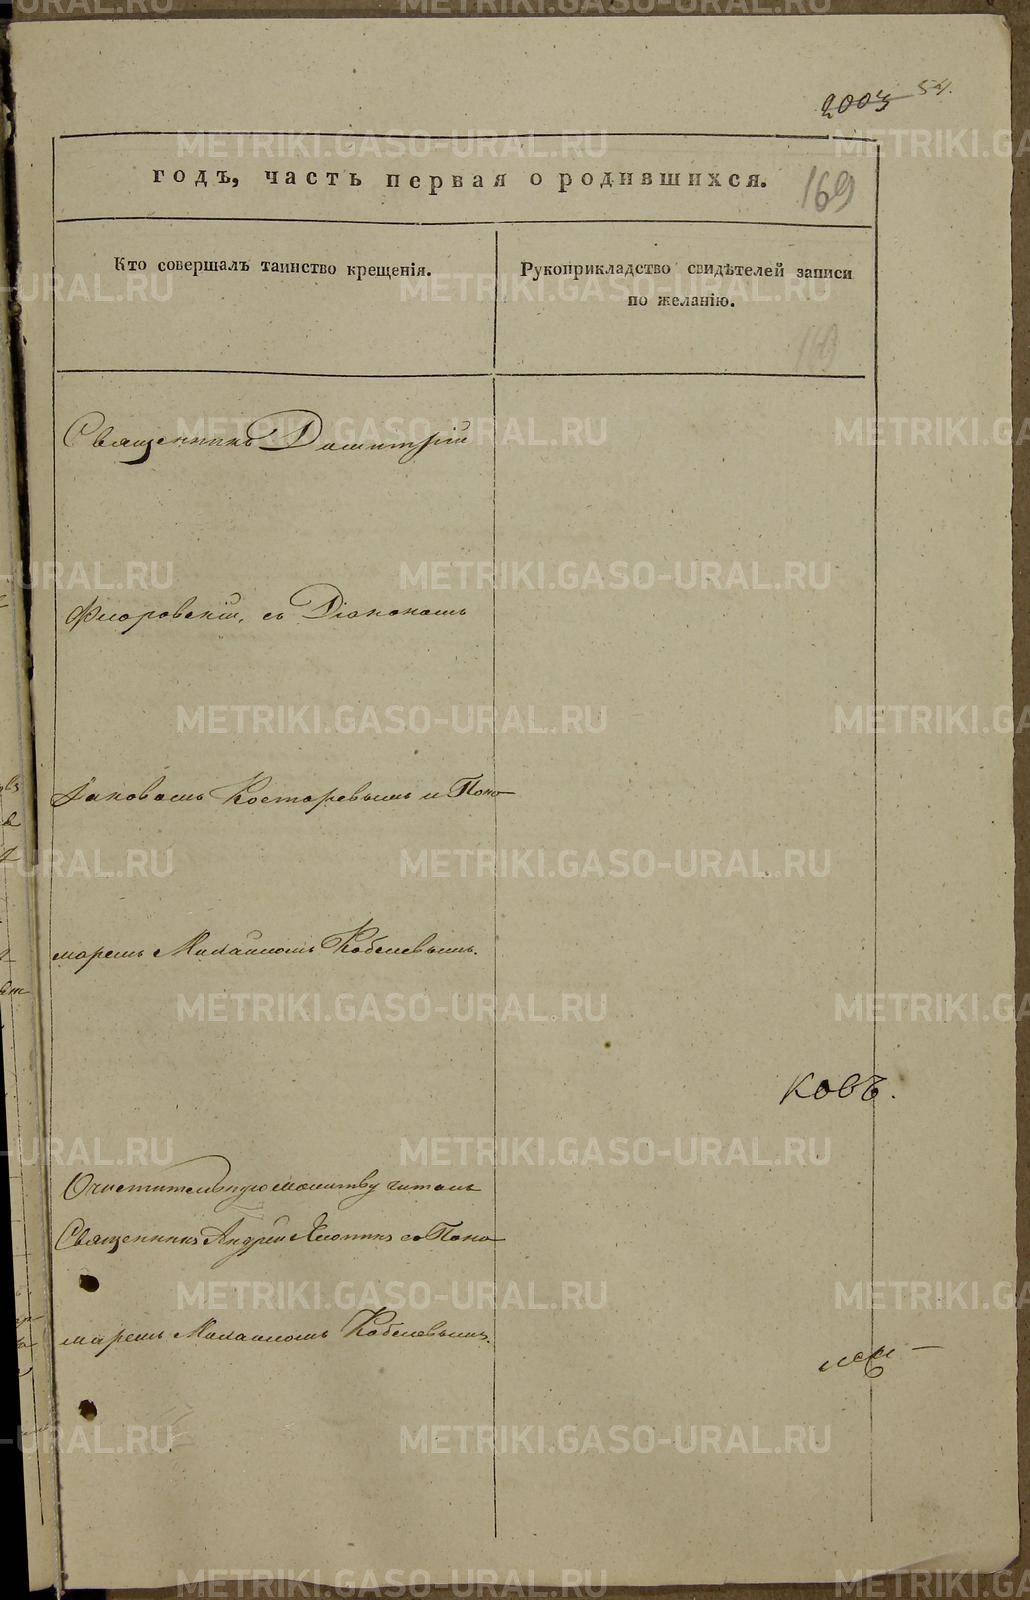 2003 54.
годъ, часть первая о родившихся. 169
Кто совершалъ таинство крещенія.
Рукоприкладство свидѣтелей записи
по желанію.
169
Священникъ Димитрій
Флоровскій, съ Діакономъ
Іаковомъ Костаревымъ и Поно
маремъ Михаиломъ Кобелевымъ.
ковъ.
Очистительную молитву читалъ
Священникъ Андрей Хлопинъ со Поно
маремъ Михаиломъ Кобелевымъ.
METRIKI.GASO-URAL.RU